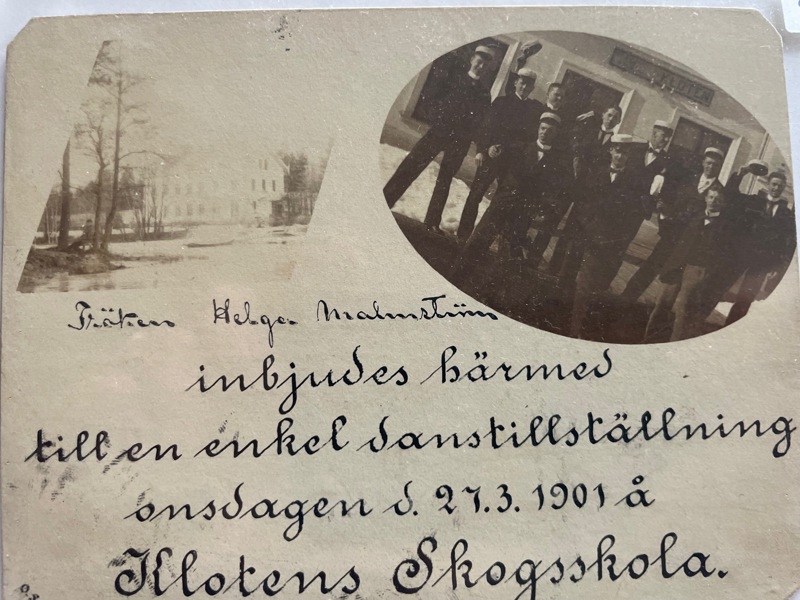 Fröken Helga Malmström
inbjudes härmed
till en enkel danstillställning
onsdagen d. 27.3. 1901 å
Klotens Skogsskola.